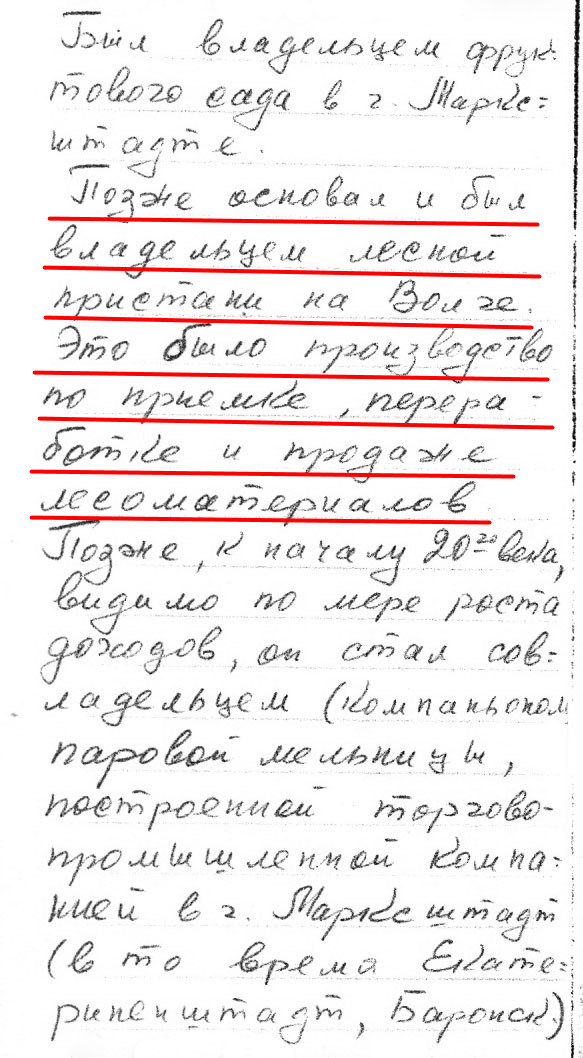 Был владельцем фрук-
тового сада в г. Маркс=
штадте.
Позже основал и был
владельцем лесной
пристани на Волге.
Это было производство
по приемке, перера-
ботке и продаже
лесоматериалов
Позже, к началу 20го века,
видимо по мере роста
доходов, он стал сов=
ладельцем (компаньоном
паровой мельницы,
построенной торгово-
промышленной компа=
нией в г. Марксштадт
(в то время Екате=
риненштадт, Баронск)